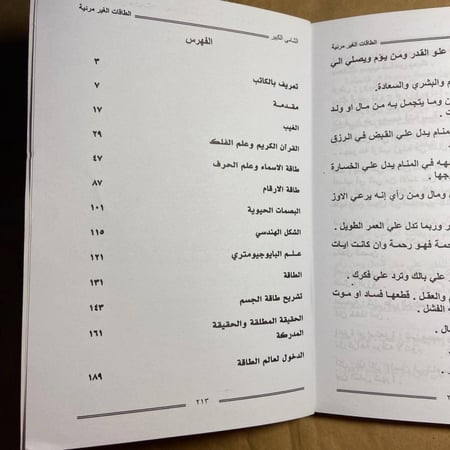 الطاقات الغير مرئية
علو القدر ومن يؤم ويصلي الي
م والبشري والسعادة.
ن وما يتجمل به من مال او ولد
منام يدل علي القبض في الرزق
فهه في المنام يدل علي الخسارة
وجها .
ومال ومن رأي إنه يرعي الاوز
ر وربما تدل علي العمر الطويل .
حمة فهو رحمة وان كانت ايات
علي بالك وترد علي فكرك .
م والعقل . قطعها فساد او موت
الفشل .
ال .
الشامي الكبير الطاقات الغير مرئية
الفهرس
تعريف بالكاتب ٣
مقدمة ٧
الغيب ١٧
القران الكريم وعلم الفلك ٢٩
طاقة الاسماء وعلم الحرف ٤٧
طاقة الارقام ٨٧
البصمات الحيوية ١٠١
الشكل الهندسي ١١٥
علم البايوجيومتري ١٢١
الطاقة ١٣١
تشريح طاقة الجسم ١٤٣
الحقيقة المطلقة والحقيقة
المدركة ١٦١
الدخول لعالم الطاقة ١٨٩
٢١٣